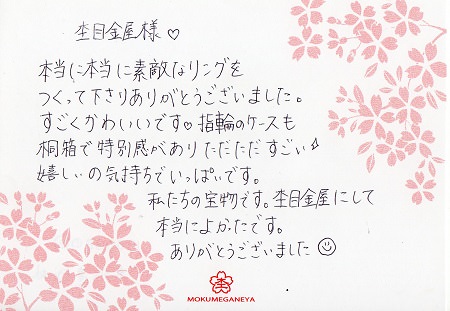 杢目金屋様♡
本当に本当に素敵なリングを
つくって下さりありがとうございました。
すごくかわいいです♡指輪のケースも
桐箱で特別感がありただただすごい
嬉しいの気持ちでいっぱいです。
私たちの宝物です。杢目金屋にして
本当によかったです。
ありがとうございました☺
杢
MOKUMEGANEYA